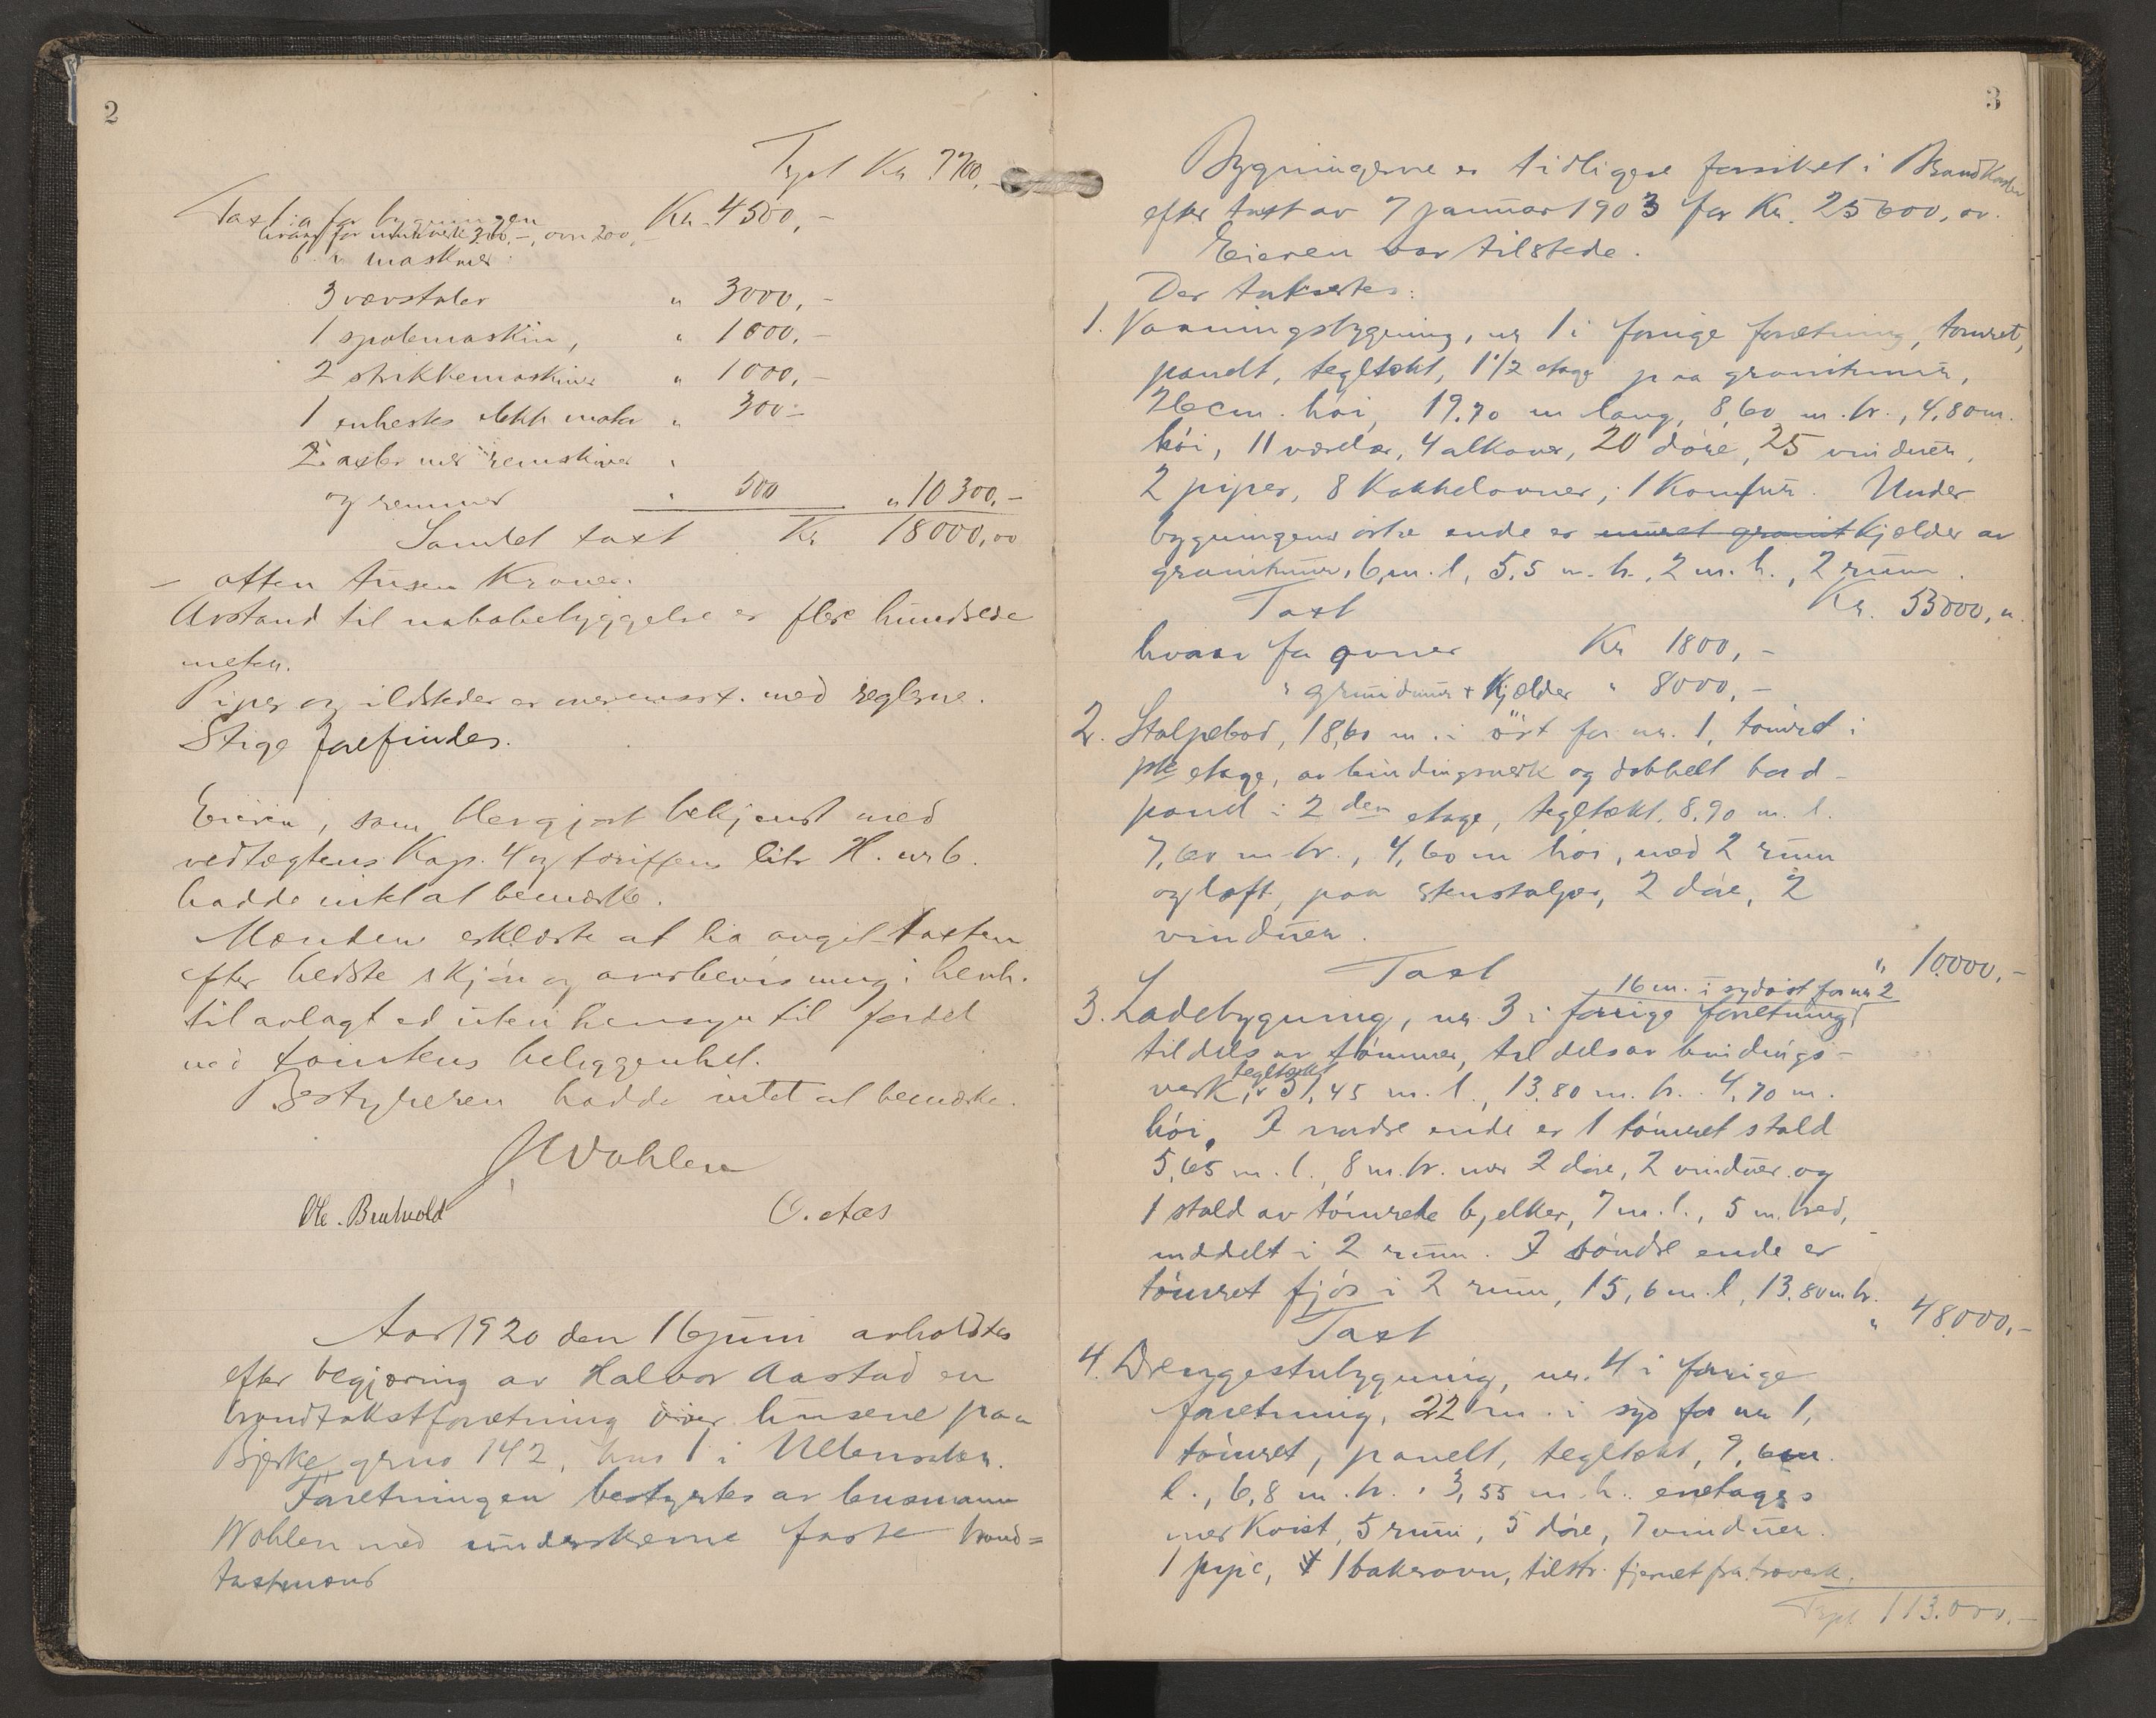 2
Trpt Kr 7700,-
Taxt a for bygningen Kr. 4500,-
hvorav for murverk 300,-, ovn 200,-
b. " maskiner:
3 vævstoler " 3000,-
1 spolemaskin, " 1000,-
2 strikkemaskiner " 1000,-
1 enhestes elektr. motor " 300-
2 axler med remskiver "
og remmer " 500 " 10300,-
Samlet taxt Kr 18000,00
- atten tusen Kroner.
Avstand til nabobebyggelse er flere hundrede
meter.
Piper og ildsteder er overensst. med reglerne.
Stige forefindes.
Eieren, som blev gjort bekjendt med
vedtægtens Kap. 4 og tariffens litr H. nr 6.
hadde intet at bemærke.
Mændene erklærte at ha avgit taxten
efter bedste skjøn og overbevisning i henh.
til avlagt ed uten hensyn til fordel
ved tomtens beliggenhet.
Bestyreren hadde intet at bemærke.
J. Wohlen
Ole. Bruhvold O. Aas
Aar 1920 den 16 juni avholdtes
efter begjæring av Halvor Aastad en
brandtakstforretning over husene paa
Bjerke grno 142, bno 1 i Ullensaker.
Forretningen bestyrtes av lensmann
Wohlen med underskrevne faste brand=
taxtmænd
3
Bygningerne er tidligere forsikret i Brandkassen
efter taxt av 7 januar 1903 for Kr. 25600,00.
Eieren var tilstede.
Der takseres:
1. Vaaningsbygning, nr 1 i forrige forretning, tømret,
panelt, tegltækt, 1 1/2 etage paa granitmur,
26 cm. høi, 19.70 m lang, 8,60 m. br., 4,80 m.
høi, 11 værelser, 4 alkover, 20 døre, 25 vinduer,
2 piper, 8 Kakkelovner, 1 Komfur. Under
bygningens østre ende er muret granit Kjelder av
granitmur, 6 m. l, 5,5 m. br., 2 m. h., 2 rum.
Taxt Kr. 53000,"
hvorav for ovner Kr 1800,-
" grundmur + Kjelder " 8000,-
2. Stolpebod, 18,60 m. i øst for nr. 1, tømret i
1ste etage, av bindingsverk og dobbelt bord-
panel i 2den etage, tegltækt, 8.90 m. l.
7,60 m br., 4,60 m høi, med 2 rum
og loft, paa stenstolper, 2 døre, 2
vinduer.
Taxt " 10000,-
16 m. i sydøst for nr 2
3. Ladebygning, nr. 3 i forrige forretning,
tildels av tømmer, tildels av bindings-
tegltækt
verk, 31,45 m. l., 13.80 m. br. 4,70 m.
høi. I nordre ende er 1 tømret stald
5,65 m. l., 8 m. br. med 2 døre, 2 vinduer og
1 stald av tømrede bjelker, 7 m. l., 5 m. bred,
inddelt i 2 rum. I søndre ende er
tømret fjøs i 2 rum, 15,6 m. l, 13.80 m br.
Taxt " 48000,-
4. Drengestubygning, nr. 4 i forrige
forretning, 22 m. i syd for nr 1,
tømret, panelt, tegltækt, 9,6 m.
l., 6,8 m. br., 3,55 m. h. enetages
med Kvist, 5 rum, 5 døre, 7 vinduer.
1 pipe, 1 bakerovn, tilstr. fjernet fra træverk.
Trpt 113.000,-